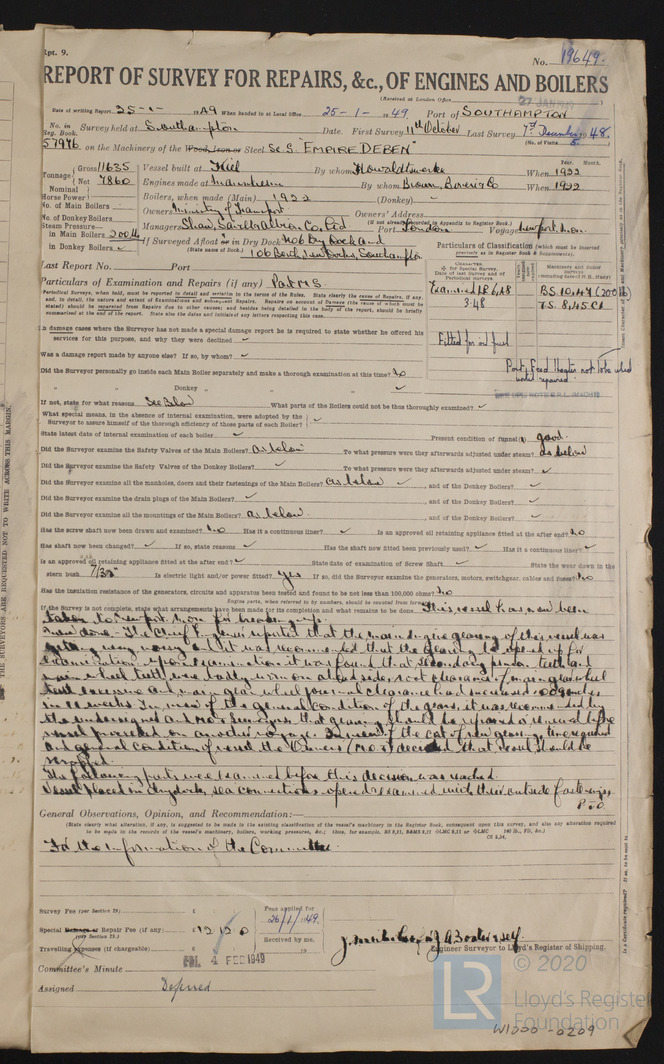 Rpt. 9.
No. 19649.
REPORT OF SURVEY FOR REPAIRS, &c., OF ENGINES AND BOILERS
(Received at London Office 27 JAN 1949)
Date of writing Report 25-1- 1949 When handed in at Local Office 25-1- 1949 Port of SOUTHAMPTON
No. in Reg. Book. Survey held at Southampton Date. First Survey 11th October Last Survey 7th December 1948.
57976 on the Machinery of the Wood, Iron or Steel Sc.S. "EMPIRE DEBEN" (No. of Visits 5.
Tonnage Gross 11635 Net 7860 Vessel built at Kiel By whom Howaldtswerke When 1922
Year. Month.
Nominal Horse Power Engines made at Mannheim By whom Brown, Boveri & Co When 1922
No. of Main Boilers Boilers, when made (Main) 1922 (Donkey) -
No. of Donkey Boilers Owners Ministry of Transport Owners' Address
(If not already recorded in Appendix to Register Book.)
Steam Pressure in Main Boilers 200 lb Managers Shaw, Savill & Albion Co. Ltd Port London Voyage Newport, Mon.
in Donkey Boilers If Surveyed Afloat or in Dry Dock No 6 Dry Dock and
(State name of Dock.) 106 Berth, New Docks, Southampton
Particulars of Classification (which must be inserted precisely as in Register Book & Supplements).
Last Report No. Port
Particulars of Examination and Repairs (if any) Part MS
Periodical Surveys, when held, must be reported in detail and seriatim in the terms of the Rules. State clearly the cause of Repairs, if any,
CHARACTER.
Machinery and Boiler Surveys
Examined LR 6,48
3.48
BS. 10,47 (200 lb)
TS. 8,45 CL
Fitted for oil fuel
Port Feed Heater not to be used until repaired
In damage cases where the Surveyor has not made a special damage report he is required to state whether he offered his
services for this purpose, and why they were declined
Was a damage report made by anyone else? If so, by whom?
Did the Surveyor personally go inside each Main Boiler separately and make a thorough examination at this time? No
" " Donkey " " "
If not, state for what reasons See Below What parts of the Boilers could not be thus thoroughly examined?
What special means, in the absence of internal examination, were adopted by the
Surveyor to assure himself of the thorough efficiency of those parts of each Boiler?
State latest date of internal examination of each boiler Present condition of funnel(s) good.
Did the Surveyor examine the Safety Valves of the Main Boilers? As below To what pressure were they afterwards adjusted under steam? as below
Did the Surveyor examine the Safety Valves of the Donkey Boilers? To what pressure were they afterwards adjusted under steam?
Did the Surveyor examine all the manholes, doors and their fastenings of the Main Boilers? as below, and of the Donkey Boilers?
Did the Surveyor examine the drain plugs of the Main Boilers? , and of the Donkey Boilers?
Did the Surveyor examine all the mountings of the Main Boilers? as below , and of the Donkey Boilers?
Has the screw shaft now been drawn and examined? No Has it a continuous liner? Is an approved oil retaining appliance fitted at the after end? No
Has shaft now been changed? If so, state reasons Has the shaft now fitted been previously used? Has it a continuous liner?
Is an approved oil retaining appliance fitted at the after end? State date of examination of Screw Shaft State the wear down in the
stern bush 7/32" Is electric light and/or power fitted? yes If so, did the Surveyor examine the generators, motors, switchgear, cables and fuses? No
Has the insulation resistance of the generators, circuits and apparatus been tested and found to be not less than 100,000 ohms? No
Engine parts, when referred to by numbers, should be counted from forward.
If the Survey is not complete, state what arrangements have been made for its completion and what remains to be done. This vessel has now been
taken to Newport, Mon for breaking up.
Now done. The Chief Engineer reported that the main engine gearing of this vessel was
getting very noisy and it was recommended that the gearing be opened up for
examination. Upon examination it was found that secondary pinion teeth and
main wheel teeth were badly worn on ahead side, root clearance of main gear wheel
teeth excessive and main gear wheel journal clearance had increased
in weeks. In view of the general condition of the gears, it was recommended by
the undersigned and Surveyors that gearing should be repaired or renewed before
vessel proceeded on another voyage. In view of the cost of new gearing, time required
and general condition of vessel the Owners (M.O.T.) decided that vessel should be
scrapped.
The following parts were examined before this decision was reached.
Vessel placed in drydock, sea connections opened & examined with their outside fastenings
P.T.O.
General Observations, Opinion, and Recommendation:—
(State clearly what alteration, if any, is suggested to be made in the existing classification of the vessel's machinery in the Register Book, consequent upon this survey, and also any alteration required
to be made in the records of the vessel's machinery, boilers, working pressures, &c.;
For the Information of the Committee.
Survey Fee (per Section 29) £ : : Fees applied for
Special Damage or Repair Fee (if any) £12 12 0 26/1/1949.
(per Section 29.)
Travelling expenses (if chargeable) £ : : Received by me,
Engineer Surveyor to Lloyd's Register of Shipping.
Committee's Minute FRI. 4 FEB 1949
Assigned Deferred
THE SURVEYORS ARE REQUESTED NOT TO WRITE ACROSS THIS MARGIN.
LR © 2020
Lloyd's Register
Foundation
W1000-0209